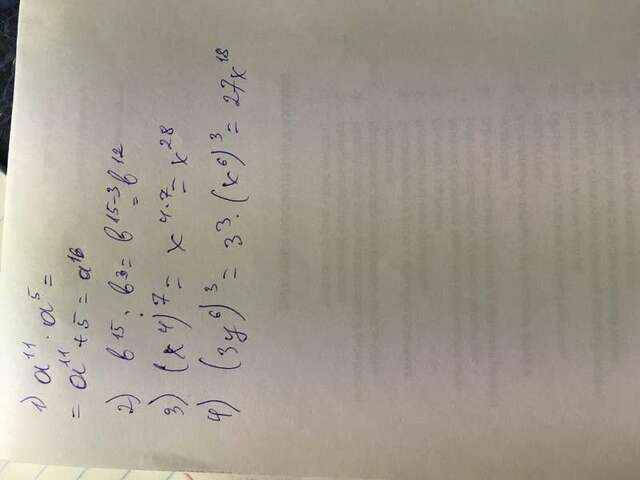 1) a¹¹ · a⁵ =
= a¹¹ + 5 = a¹⁶
2) b¹⁵ : b³ = b¹⁵⁻³ = b¹²
3) (x⁴)⁷ = x⁴·⁷ = x²⁸
4) (3y⁶)³ = 3³ · (x⁶)³ = 27x¹⁸